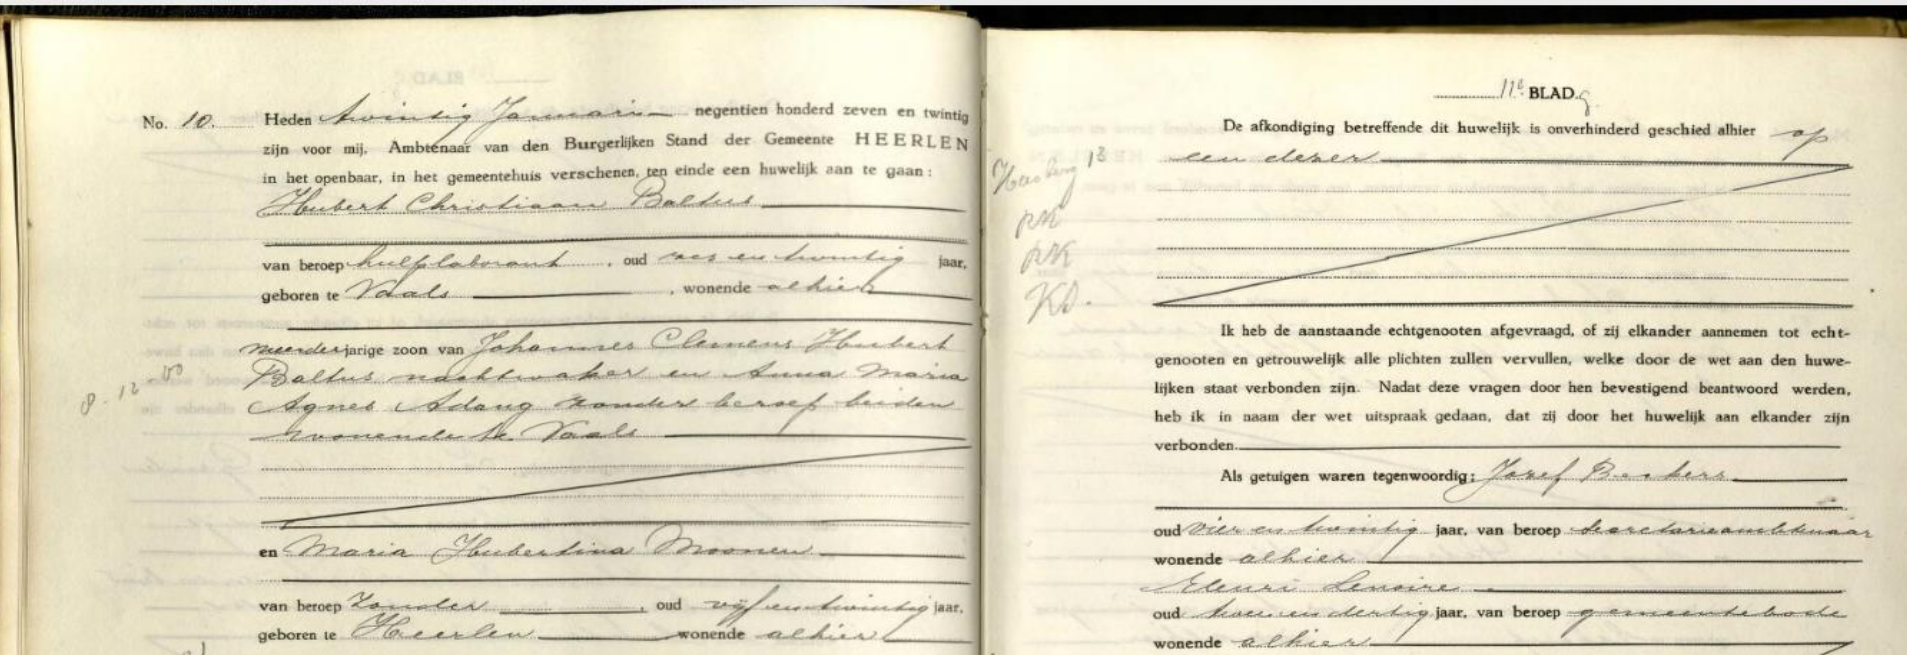 No. 10. Heden twintig Januari negentien honderd zeven en twintig
zijn voor mij, Ambtenaar van den Burgerlijken Stand der Gemeente HEERLEN
in het openbaar, in het gemeentehuis verschenen, ten einde een huwelijk aan te gaan:
Hubert Christiaan Baltus
van beroep hulplaborant, oud zes en twintig jaar,
geboren te Vaals, wonende alhier
meerderjarige zoon van Johannes Clemens Hubert
Baltus nachtwaker en Anna Maria
8-12 00
Agnes Adang zonder beroep beiden
wonende te Vaals
en Maria Hubertina Moonen
van beroep zonder, oud vijf en twintig jaar,
geboren te Heerlen wonende alhier
11e BLAD.
De afkondiging betreffende dit huwelijk is onverhinderd geschied alhier op
een dezer
13
RK
RK
Ik heb de aanstaande echtgenooten afgevraagd, of zij elkander aannemen tot echt-
genooten en getrouwelijk alle plichten zullen vervullen, welke door de wet aan den huwe-
lijken staat verbonden zijn. Nadat deze vragen door hen bevestigend beantwoord werden,
heb ik in naam der wet uitspraak gedaan, dat zij door het huwelijk aan elkander zijn
verbonden.
Als getuigen waren tegenwoordig: Jozef Beckers
oud vier en twintig jaar, van beroep secretarieambtenaar
wonende alhier
Henri Lenoire
oud twee en dertig jaar, van beroep gemeentebode
wonende alhier